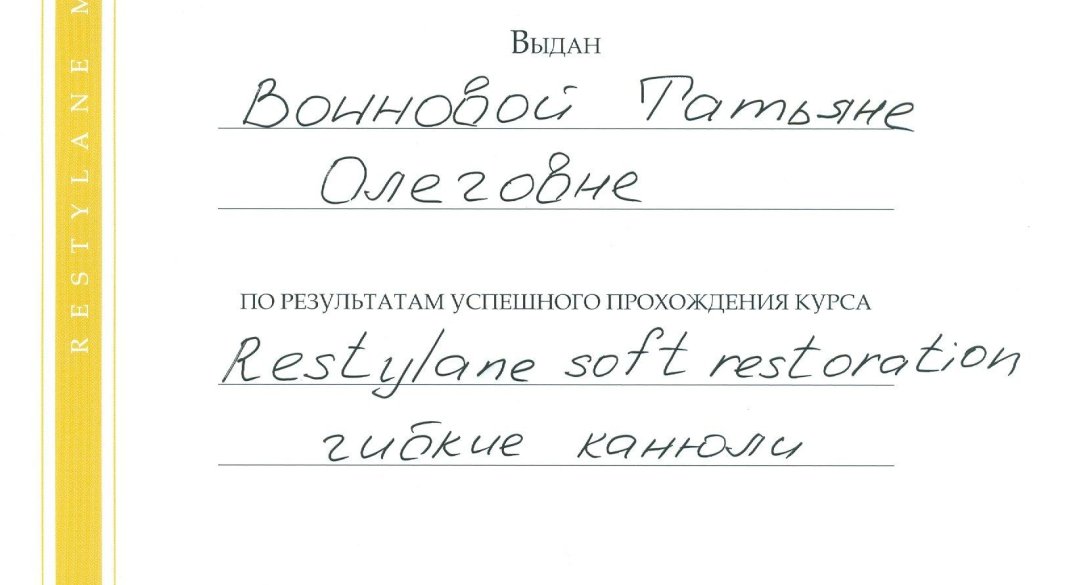 RESTYLANE M
Выдан
Воиновой Татьяне
Олеговне
ПО РЕЗУЛЬТАТАМ УСПЕШНОГО ПРОХОЖДЕНИЯ КУРСА
Restylane soft restoration
гибкие канюли